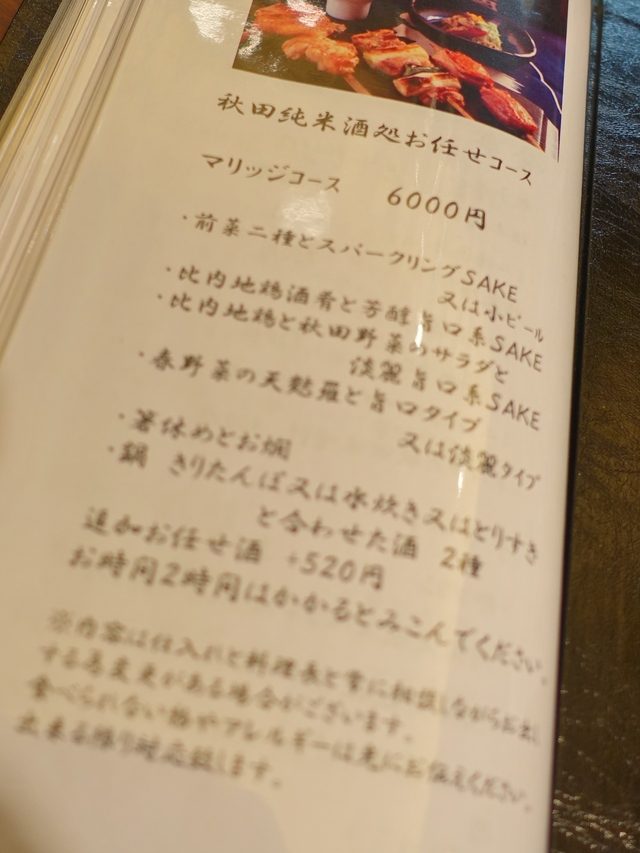 秋田純米酒処お任せコース
マリッジコース 6000円
・前菜二種とスパークリングSAKE
又は小ビール
・比内地鶏酒肴と芳醇旨口系SAKE
・比内地鶏と秋田野菜のサラダと
淡麗旨口系SAKE
・春野菜の天麩羅と旨口タイプ
又は淡麗タイプ
・箸休めとお燗
・鍋 きりたんぽ又は水炊き又はとりすき
と合わせた酒 2種
追加お任せ酒 +520円
お時間2時間はかかるとみこんでください。
※内容は仕入れと料理長と常に相談しながらお出し
する為変更がある場合がございます。
食べられない物やアレルギーは先にお伝えください。
出来る限り対応致します。